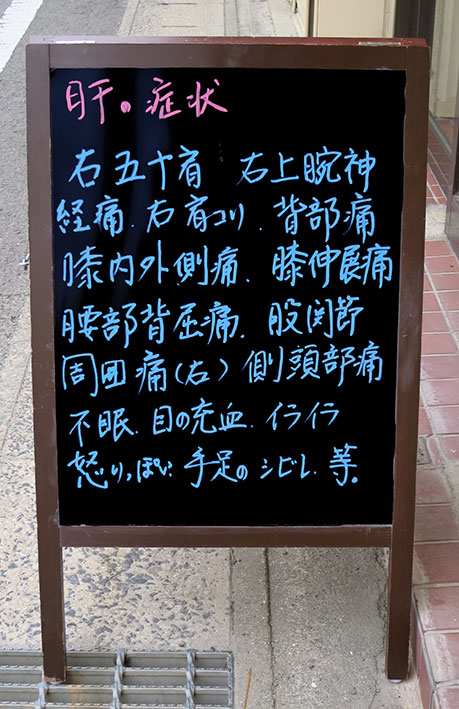 肝の症状
右五十肩 右上腕神
経痛.右肩コリ.背部痛
膝内外側痛.膝伸展痛
腰部背屈痛.股関節
周囲痛(右)側頭部痛
不眠.目の充血.イライラ
怒りっぽい 手足のシビレ.等.